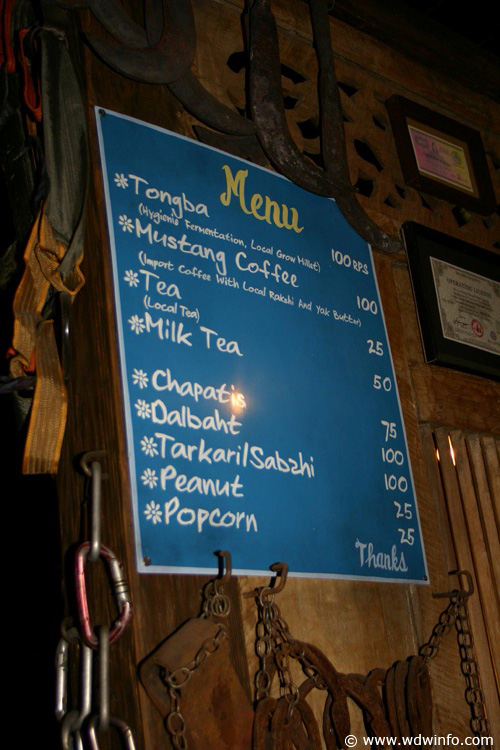 Menu
*Tongba 100 RPS
(Hygienic Fermentation, Local Grow Millet)
*Mustang Coffee 100
(Import Coffee With Local Rakshi And Yak Butter)
*Tea 25
(Local Tea)
*Milk Tea 50
*Chapatis 75
*Dalbaht 100
*Tarkaril Sabzhi 100
*Peanut 25
*Popcorn 25
Thanks
© www.wdwinfo.com